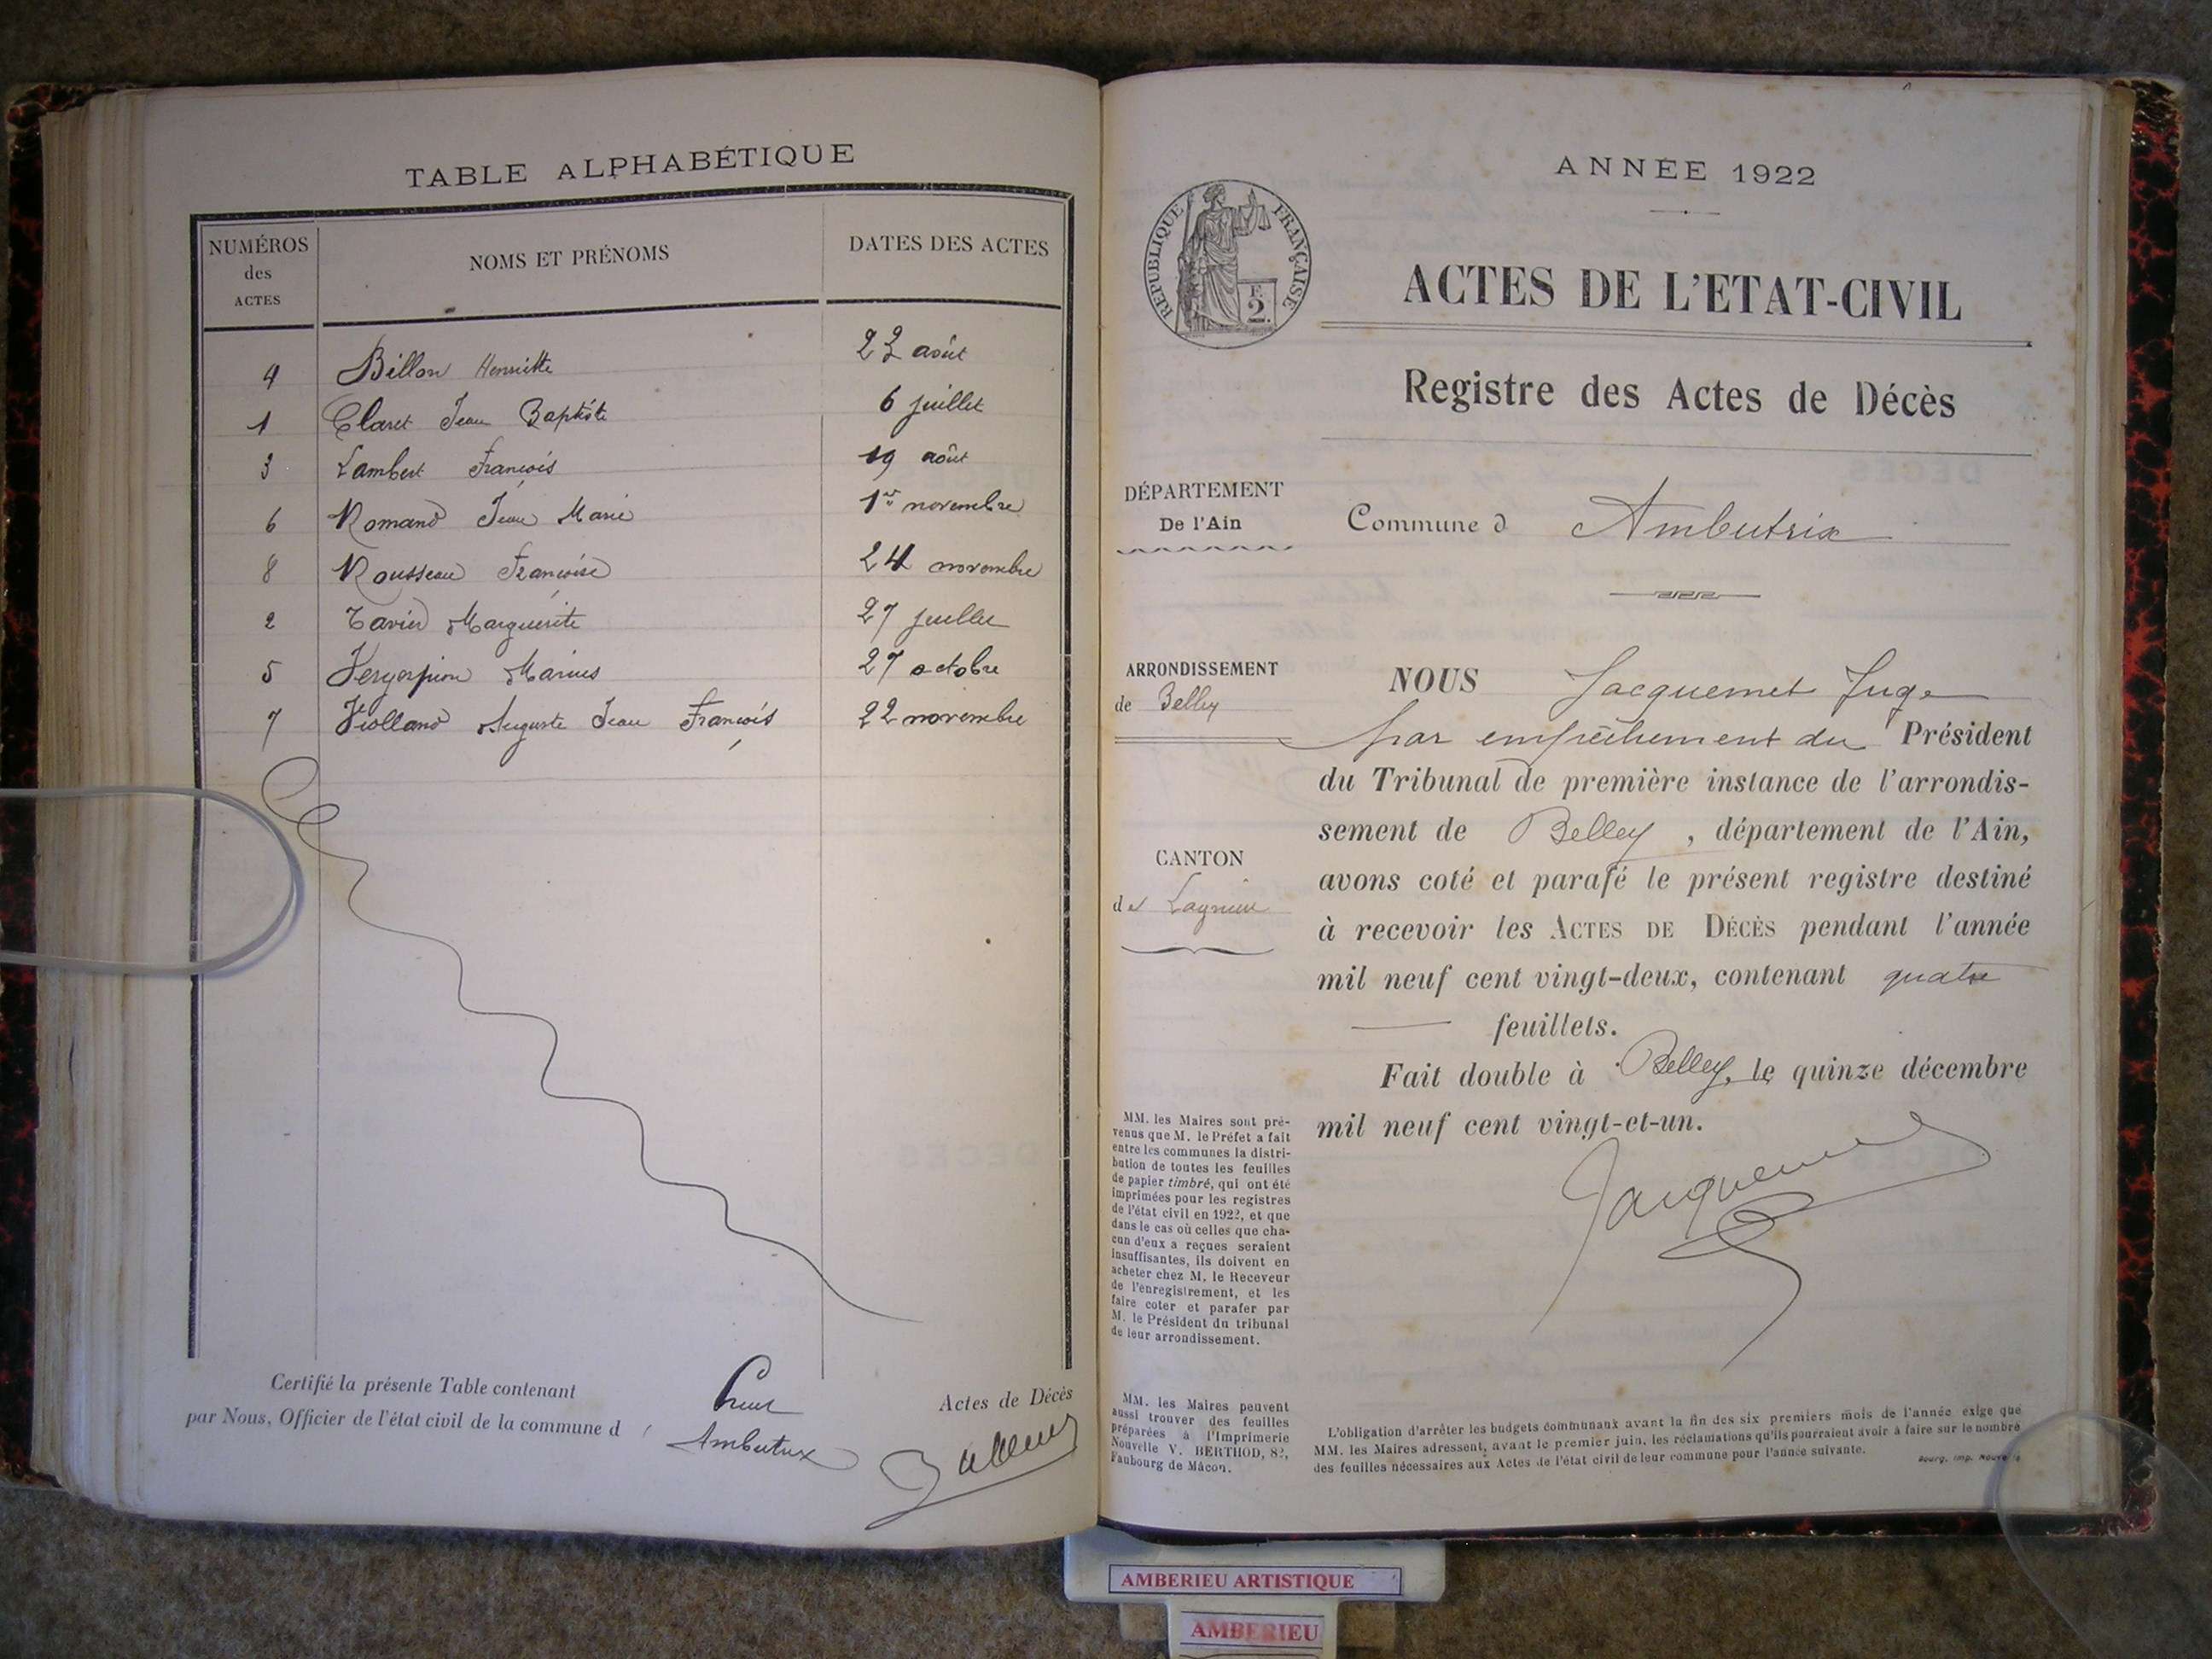 TABLE ALPHABÉTIQUE
NUMÉROS des ACTES NOMS ET PRÉNOMS DATES DES ACTES
4 Billon Henriette 22 août
1 Claret Jean Baptiste 6 juillet
3 Lambert François 19 août
6 Romand Jean Marie 1er novembre
8 Rousseau Françoise 24 novembre
2 Tavier Marguerite 27 juillet
5 Marius 27 octobre
7 Violland Auguste Jean François 22 novembre
Certifié la présente Table contenant Actes de Décès
par Nous, Officier de l'état civil de la commune d Ambutrix
ANNÉE 1922
RÉPUBLIQUE FRANÇAISE
2.
ACTES DE L'ETAT-CIVIL
Registre des Actes de Décès
DÉPARTEMENT
De l'Ain
Commune d Ambutrix
ARRONDISSEMENT
de Belley
CANTON
de Lagnieu
NOUS Jacquemet Juge
par empêchement du Président
du Tribunal de première instance de l'arrondis-
sement de Belley, département de l'Ain,
avons coté et parafé le présent registre destiné
à recevoir les ACTES DE DÉCÈS pendant l'année
mil neuf cent vingt-deux, contenant quatre
feuillets.
Fait double à Belley, le quinze décembre
mil neuf cent vingt-et-un.
Jacquemet
MM. les Maires sont pré-
venus que M. le Préfet a fait
entre les communes la distri-
bution de toutes les feuilles
de papier timbré, qui ont été
imprimées pour les registres
de l'état civil en 1922, et que
dans le cas où celles que cha-
cun d'eux a reçues seraient
insuffisantes, ils doivent en
acheter chez M. le Receveur
de l'enregistrement, et les
faire coter et parafer par
M. le Président du tribunal
de leur arrondissement.
MM. les Maires peuvent
aussi trouver des feuilles
préparées à l'Imprimerie
Nouvelle V. BERTHOD, 82,
Faubourg de Mâcon.
L'obligation d'arrêter les budgets communaux avant la fin des six premiers mois de l'année exige que
MM. les Maires adressent, avant le premier juin, les réclamations qu'ils pourraient avoir à faire sur le nombre
des feuilles nécessaires aux Actes de l'état civil de leur commune pour l'année suivante.
Bourg, Imp. Nouvelle
AMBERIEU ARTISTIQUE
AMBERIEU